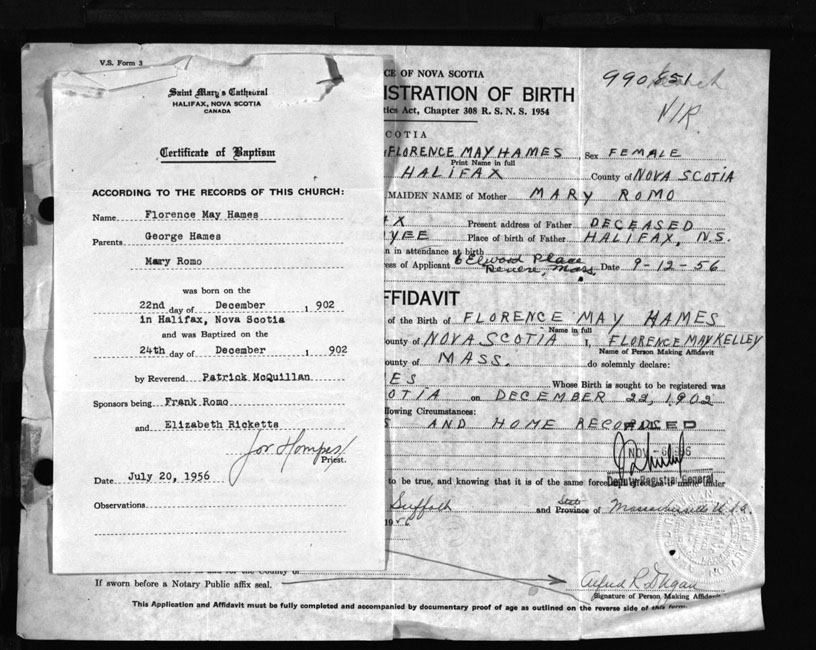 V.S. Form 3
Saint Mary's Cathedral
HALIFAX, NOVA SCOTIA
CANADA
Certificate of Baptism
ACCORDING TO THE RECORDS OF THIS CHURCH:
Name Florence May Hames
Parents George Hames
Mary Romo
was born on the
22nd day of December 1902
in Halifax, Nova Scotia
and was Baptized on the
24th day of December 1902
by Reverend Patrick McQuillan
Sponsors being Frank Romo
and Elizabeth Ricketts
Priest.
Date July 20, 1956
Observations
CE OF NOVA SCOTIA
990,851
ISTRATION OF BIRTH
N/R
tics Act, Chapter 308 R. S. N. S. 1954
SCOTIA
FLORENCE MAY HAMES Sex FEMALE
Print Name in full
HALIFAX County of NOVA SCOTIA
MAIDEN NAME of Mother MARY ROMO
AX Present address of Father DECEASED
YEE Place of birth of Father HALIFAX, N.S.
n in attendance at birth
ess of Applicant 6 Elwood Place Revere, Mass. Date 9-12-56
FFIDAVIT
of the Birth of FLORENCE MAY HAMES
Name in full
ounty of NOVA SCOTIA I, FLORENCE MAY KELLEY
Name of Person Making Affidavit
ounty of MASS. do solemnly declare:
ES Whose Birth is sought to be registered was
OTIA on DECEMBER 22, 1902
llowing Circumstances:
S AND HOME RECORDS
NOV
to be true, and knowing that it is of the same force
Deputy Registrar General
Suffolk and State Province of Massachusetts U.S.A.
If sworn before a Notary Public affix seal.
Alfred R. Dugan
Signature of Person Making Affidavit
This Application and Affidavit must be fully completed and accompanied by documentary proof of age as outlined on the reverse side of this form.